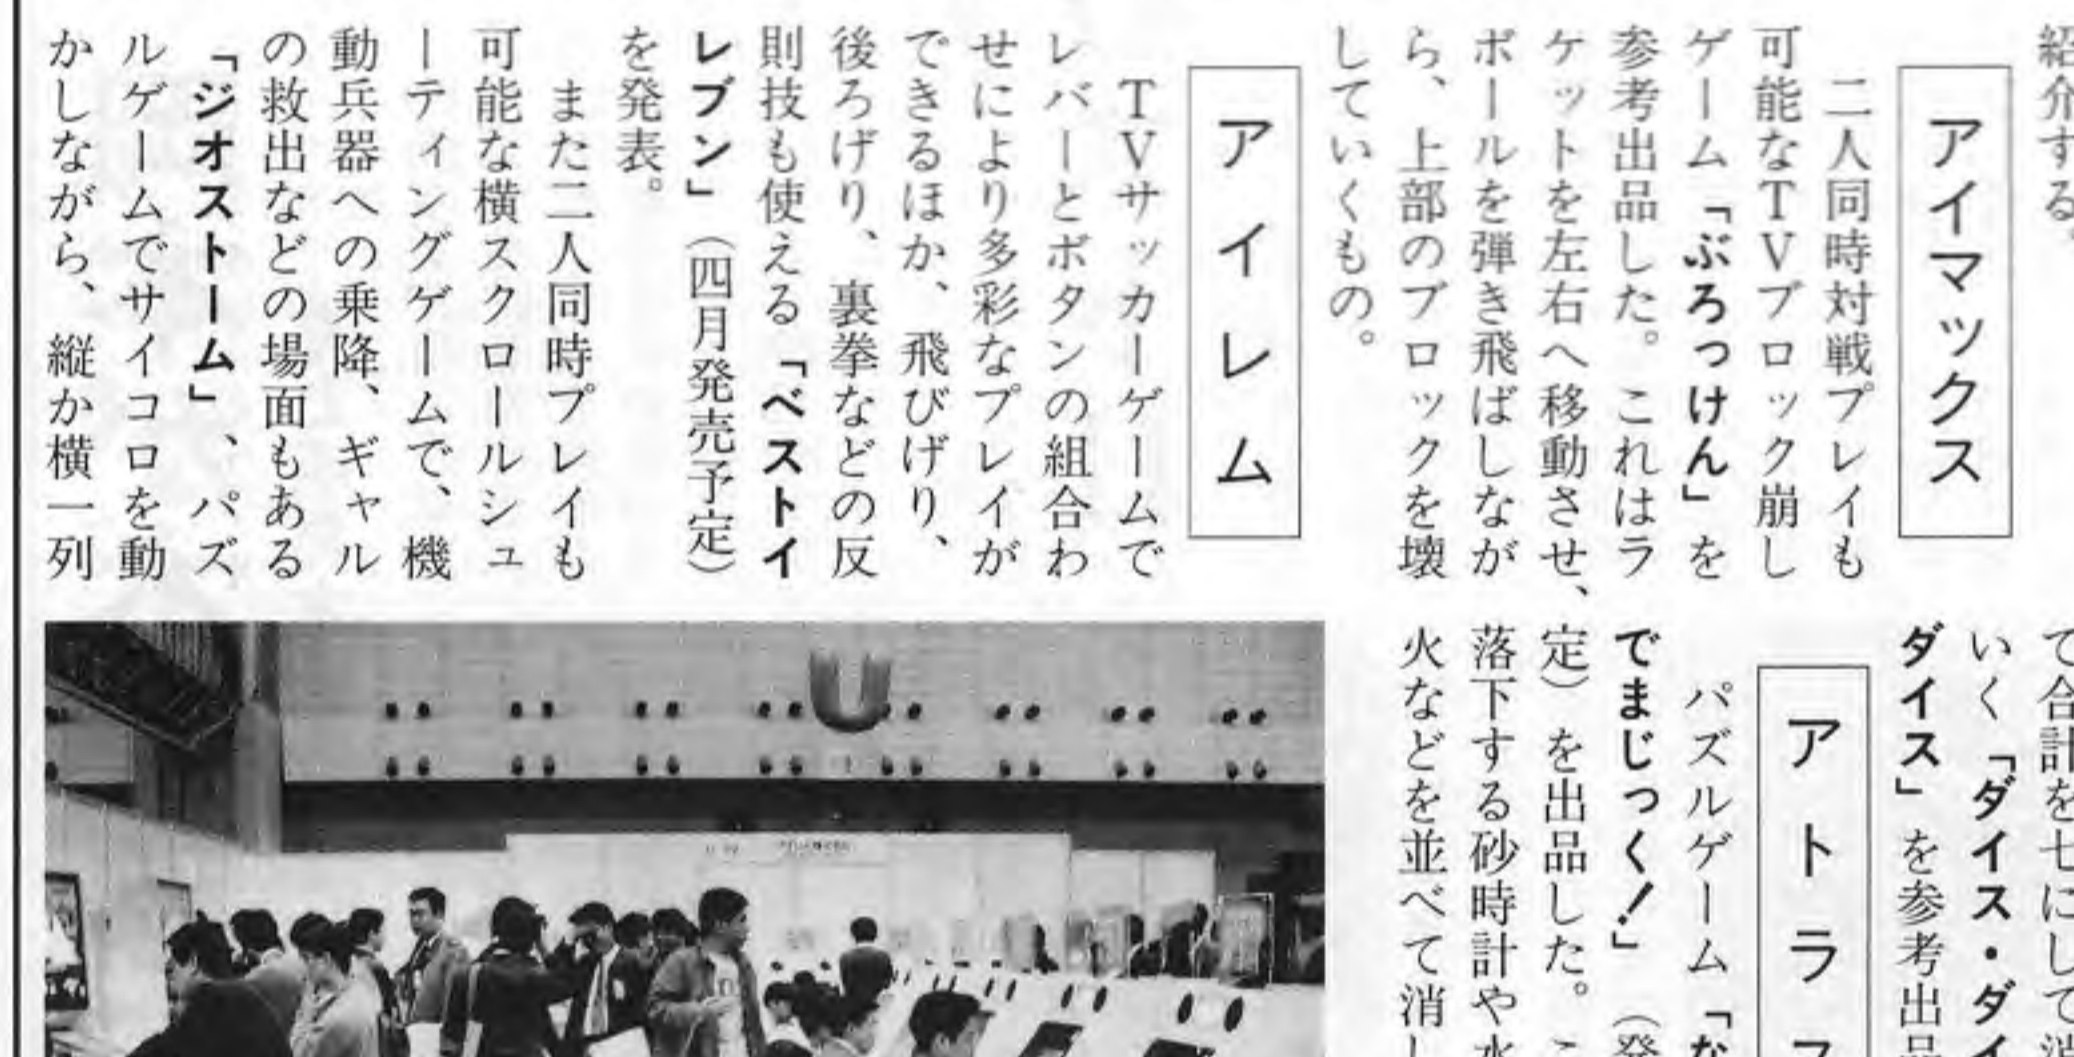 紹介する。
アイマックス
二人同時対戦プレイも
可能なTVブロック崩し
ゲーム「ぶろっけん」を
参考出品した。これはラ
ケットを左右へ移動させ、
ボールを弾き飛ばしなが
ら、上部のブロックを壊
していくもの。
アイレム
TVサッカーゲームで
レバーとボタンの組合わ
せにより多彩なプレイが
できるほか、飛びげり、
後ろげり、裏拳などの反
則技も使える「ベストイ
レブン」(四月発売予定)
を発表。
また二人同時プレイも
可能な横スクロールシュ
ーティングゲームで、機
動兵器への乗降、ギャル
の救出などの場面もある
「ジオストーム」、パズ
ルゲームでサイコロを動
かしながら、縦か横一列
て合計を七にして消
いく「ダイス・ダイ
ダイス」を参考出品
アトラス
パズルゲーム「な
でまじっく!」(発
定)を出品した。こ
落下する砂時計や水
火などを並べて消し